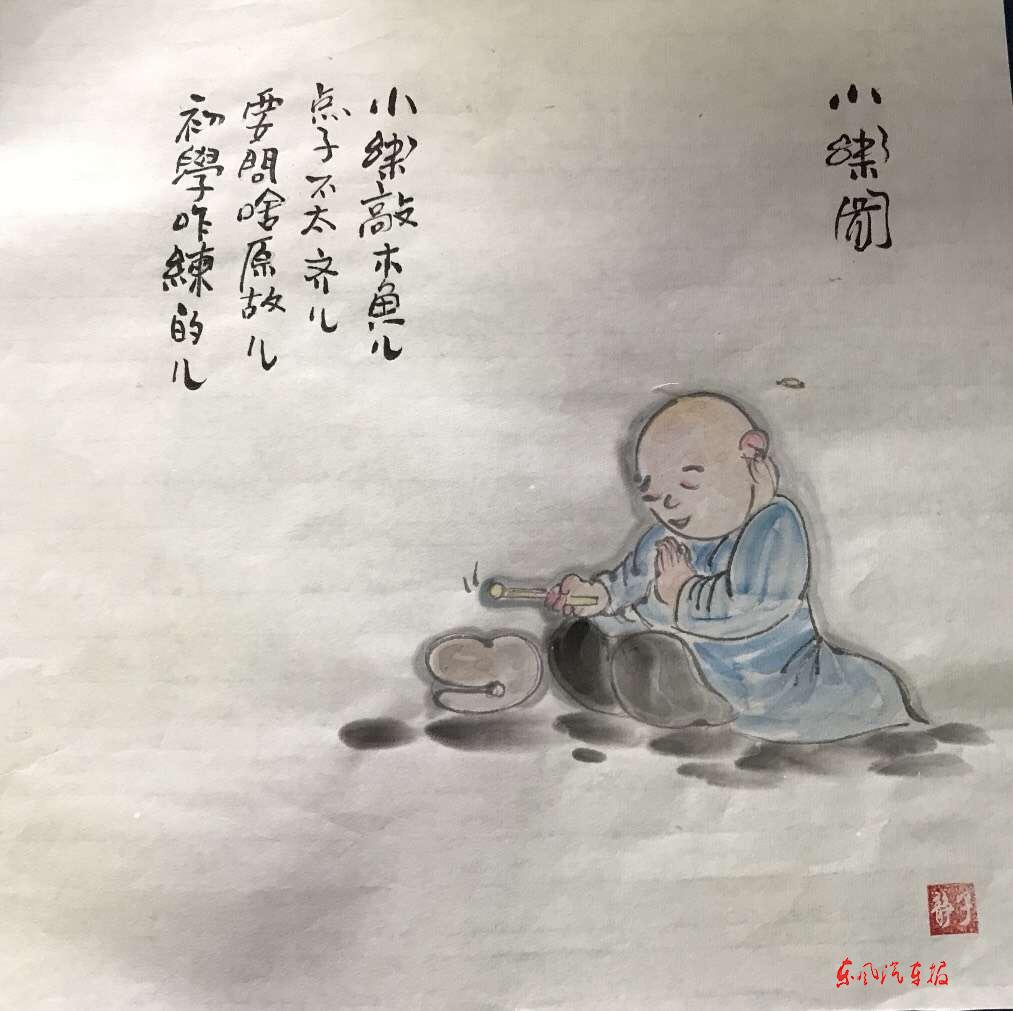 小
小 敲木魚儿
点子不太齐儿
要問啥原故儿
初學咋練的儿
东风汽车报